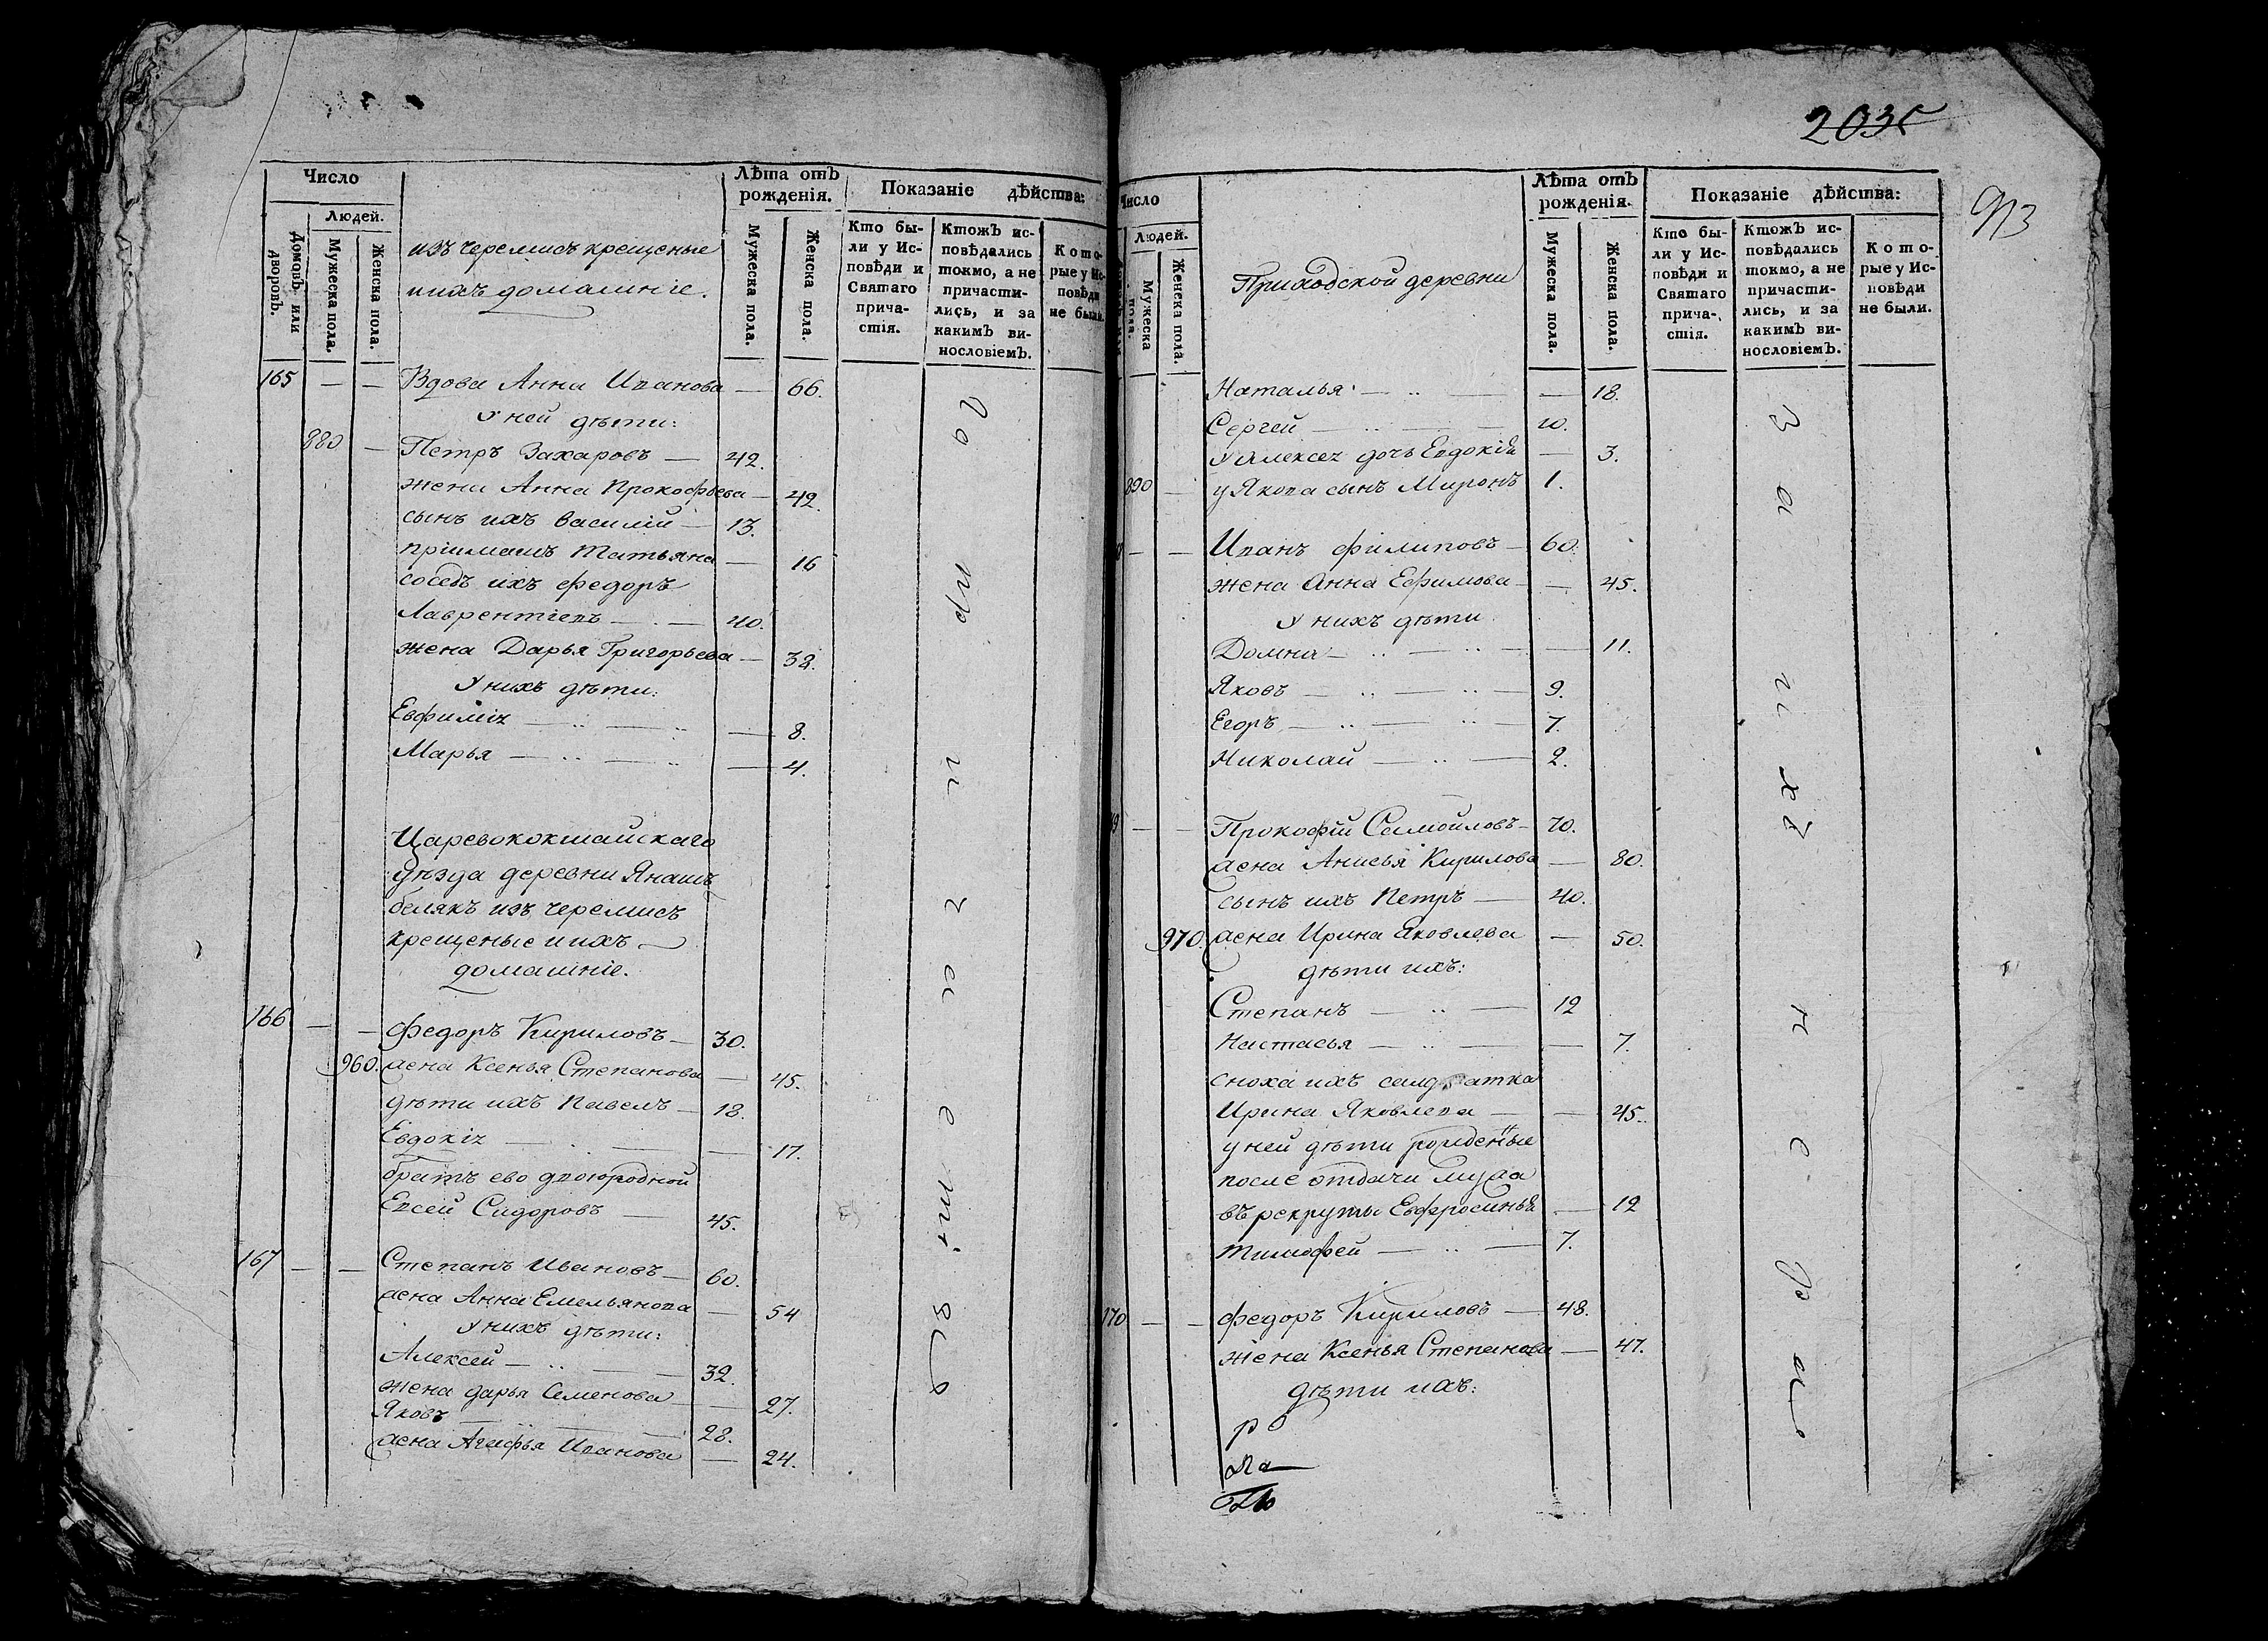 Число
Людей.
Домовъ или дворовъ.
Мужеска пола.
Женска пола.
изъ черемисъ крещеные
и ихъ домашніе.
Лѣта отъ рожденія.
Мужеска пола.
Женска пола.
Показаніе дѣйства:
Кто были у Исповѣди и Святаго причастія.
Ктожъ исповѣдались токмо, а не причастились, и за какимъ винословіемъ.
Которые у Исповѣди не были.
165 — — Вдова Анна Иванова — 66.
У ней дѣти:
880 — Петръ Захаровъ — 42.
жена Анна Прокофьева — 42.
сынъ ихъ Василій — 13.
пріимашъ Татьяна — 16
соседъ ихъ Федоръ
Лаврентіевъ — 40.
жена Дарья Григорьева — 38.
У нихъ дѣти:
Евфимія — 8.
Марья — 4.
Царевококшайскаго
уѣзда деревни Янашъ
белякъ изъ черемисъ
крещеные и ихъ
домашніе.
166 — — Федоръ Кириловъ — 30.
960. жена Ксенья Степанова — 45.
дѣти ихъ Павелъ — 18.
Евдокія — 17.
братъ ево двоюродной
Евсей Сидоровъ — 45.
167 — — Степанъ Ивановъ — 60.
жена Анна Емельянова — 54
У нихъ дѣти:
Алексей — 32.
жена дарья Семенова — 27.
Яковъ — 28.
жена Агафья Иванова — 24.
2035
913
Число
Людей.
Мужеска пола.
Женска пола.
Приходской деревни
Лѣта отъ рожденія.
Мужеска пола.
Женска пола.
Показаніе дѣйства:
Кто были у Исповѣди и Святаго причастія.
Ктожъ исповѣдались токмо, а не причастились, и за какимъ винословіемъ.
Которые у Исповѣди не были.
Наталья — 18.
Сергей — 10.
У Алексея дочь Евдокія — 3.
890 — у Якова сынъ Миронъ 1.
— — Иванъ Филиповъ — 60.
жена Анна Ефимова — 45.
У нихъ дѣти
Домна — 11.
Яковъ — 9.
Егоръ — 7.
Николай — 2.
— — Прокофій Самойловъ — 70.
жена Анисья Кирилова — 80.
сынъ ихъ Петръ — 40.
970. жена Ирина Яковлева — 50.
дѣти ихъ:
Степанъ — 12
Настасья — 7.
сноха ихъ салдатка
Ирина Яковлева — 45.
у ней дѣти рожденные
после отдачи мужа
въ рекруты Евфросинья — 12
Тимофей — 7.
170 — — Федоръ Кириловъ — 48.
жена Ксенья Степанова — 47.
дѣти ихъ: